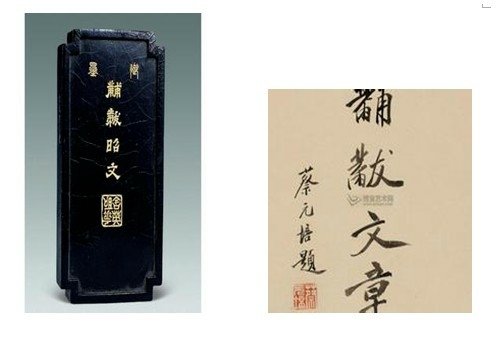 御墨
黼黻昭文
黼黻文章
蔡元培題